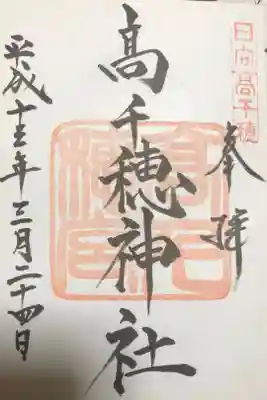 日向高千穂
奉拝
髙千穂神社
平成十三年三月二十四日